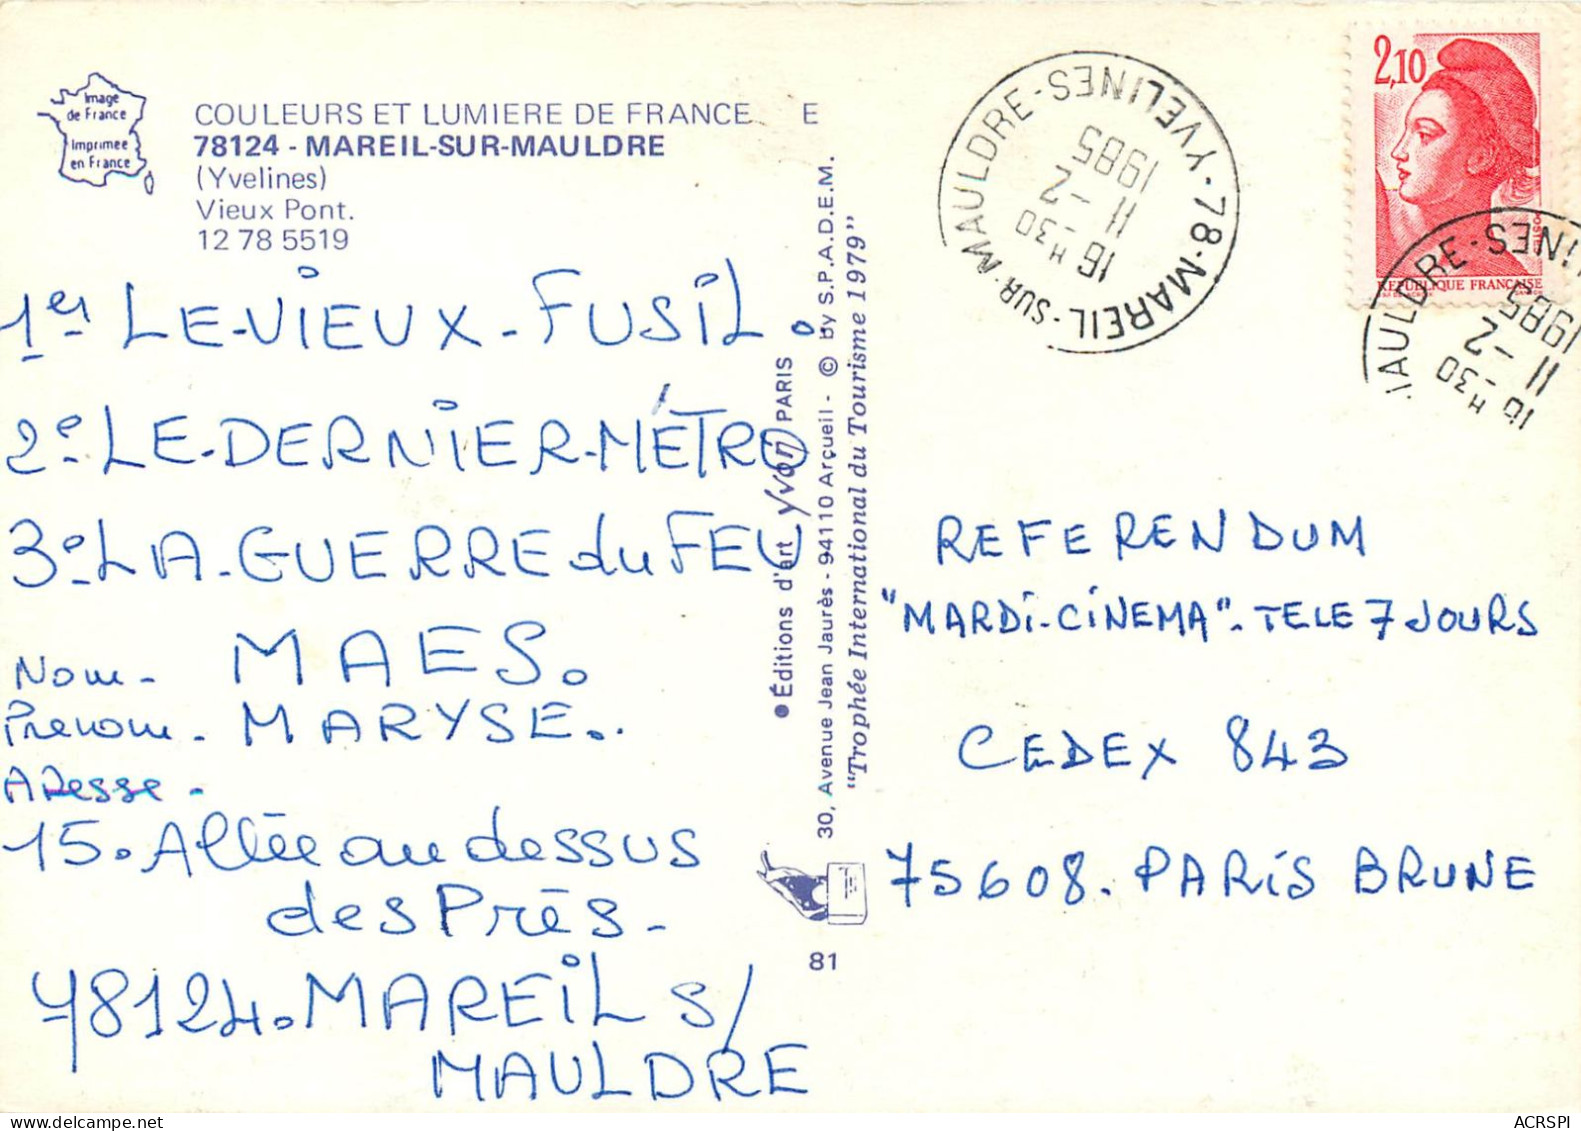 Image
de France
Imprimee
en France
COULEURS ET LUMIERE DE FRANCE E
78124 - MAREIL-SUR-MAULDRE
(Yvelines)
Vieux Pont.
12 78 5519
1er LE-VIEUX-FUSIL.
2e LE-DERNIER-MÉTRO
3e LA-GUERRE du FEU
Nom- MAES.
Prenom- MARYSE..
ADresse-
15. Allée au dessus
des Près-
78124. MAREIL S/
MAULDRE
● Éditions d'art Yvon PARIS
30, Avenue Jean Jaurès - 94110 Arçueil - © by S.P.A.D.E.M.
"Trophée International du Tourisme 1979"
81
78-MAREIL-SUR-MAULDRE-YVELINES
16 H 30
11 -2
1985
2,10
POSTES
REPUBLIQUE FRANCAISE
AULDRE-YVELINES
16 H 30
11 -2
1985
REFERENDUM
"MARDi-CiNEMA"-TELE 7 JOURS
CEDEX 843
75608. PARiS BRUNE
ACRSPI